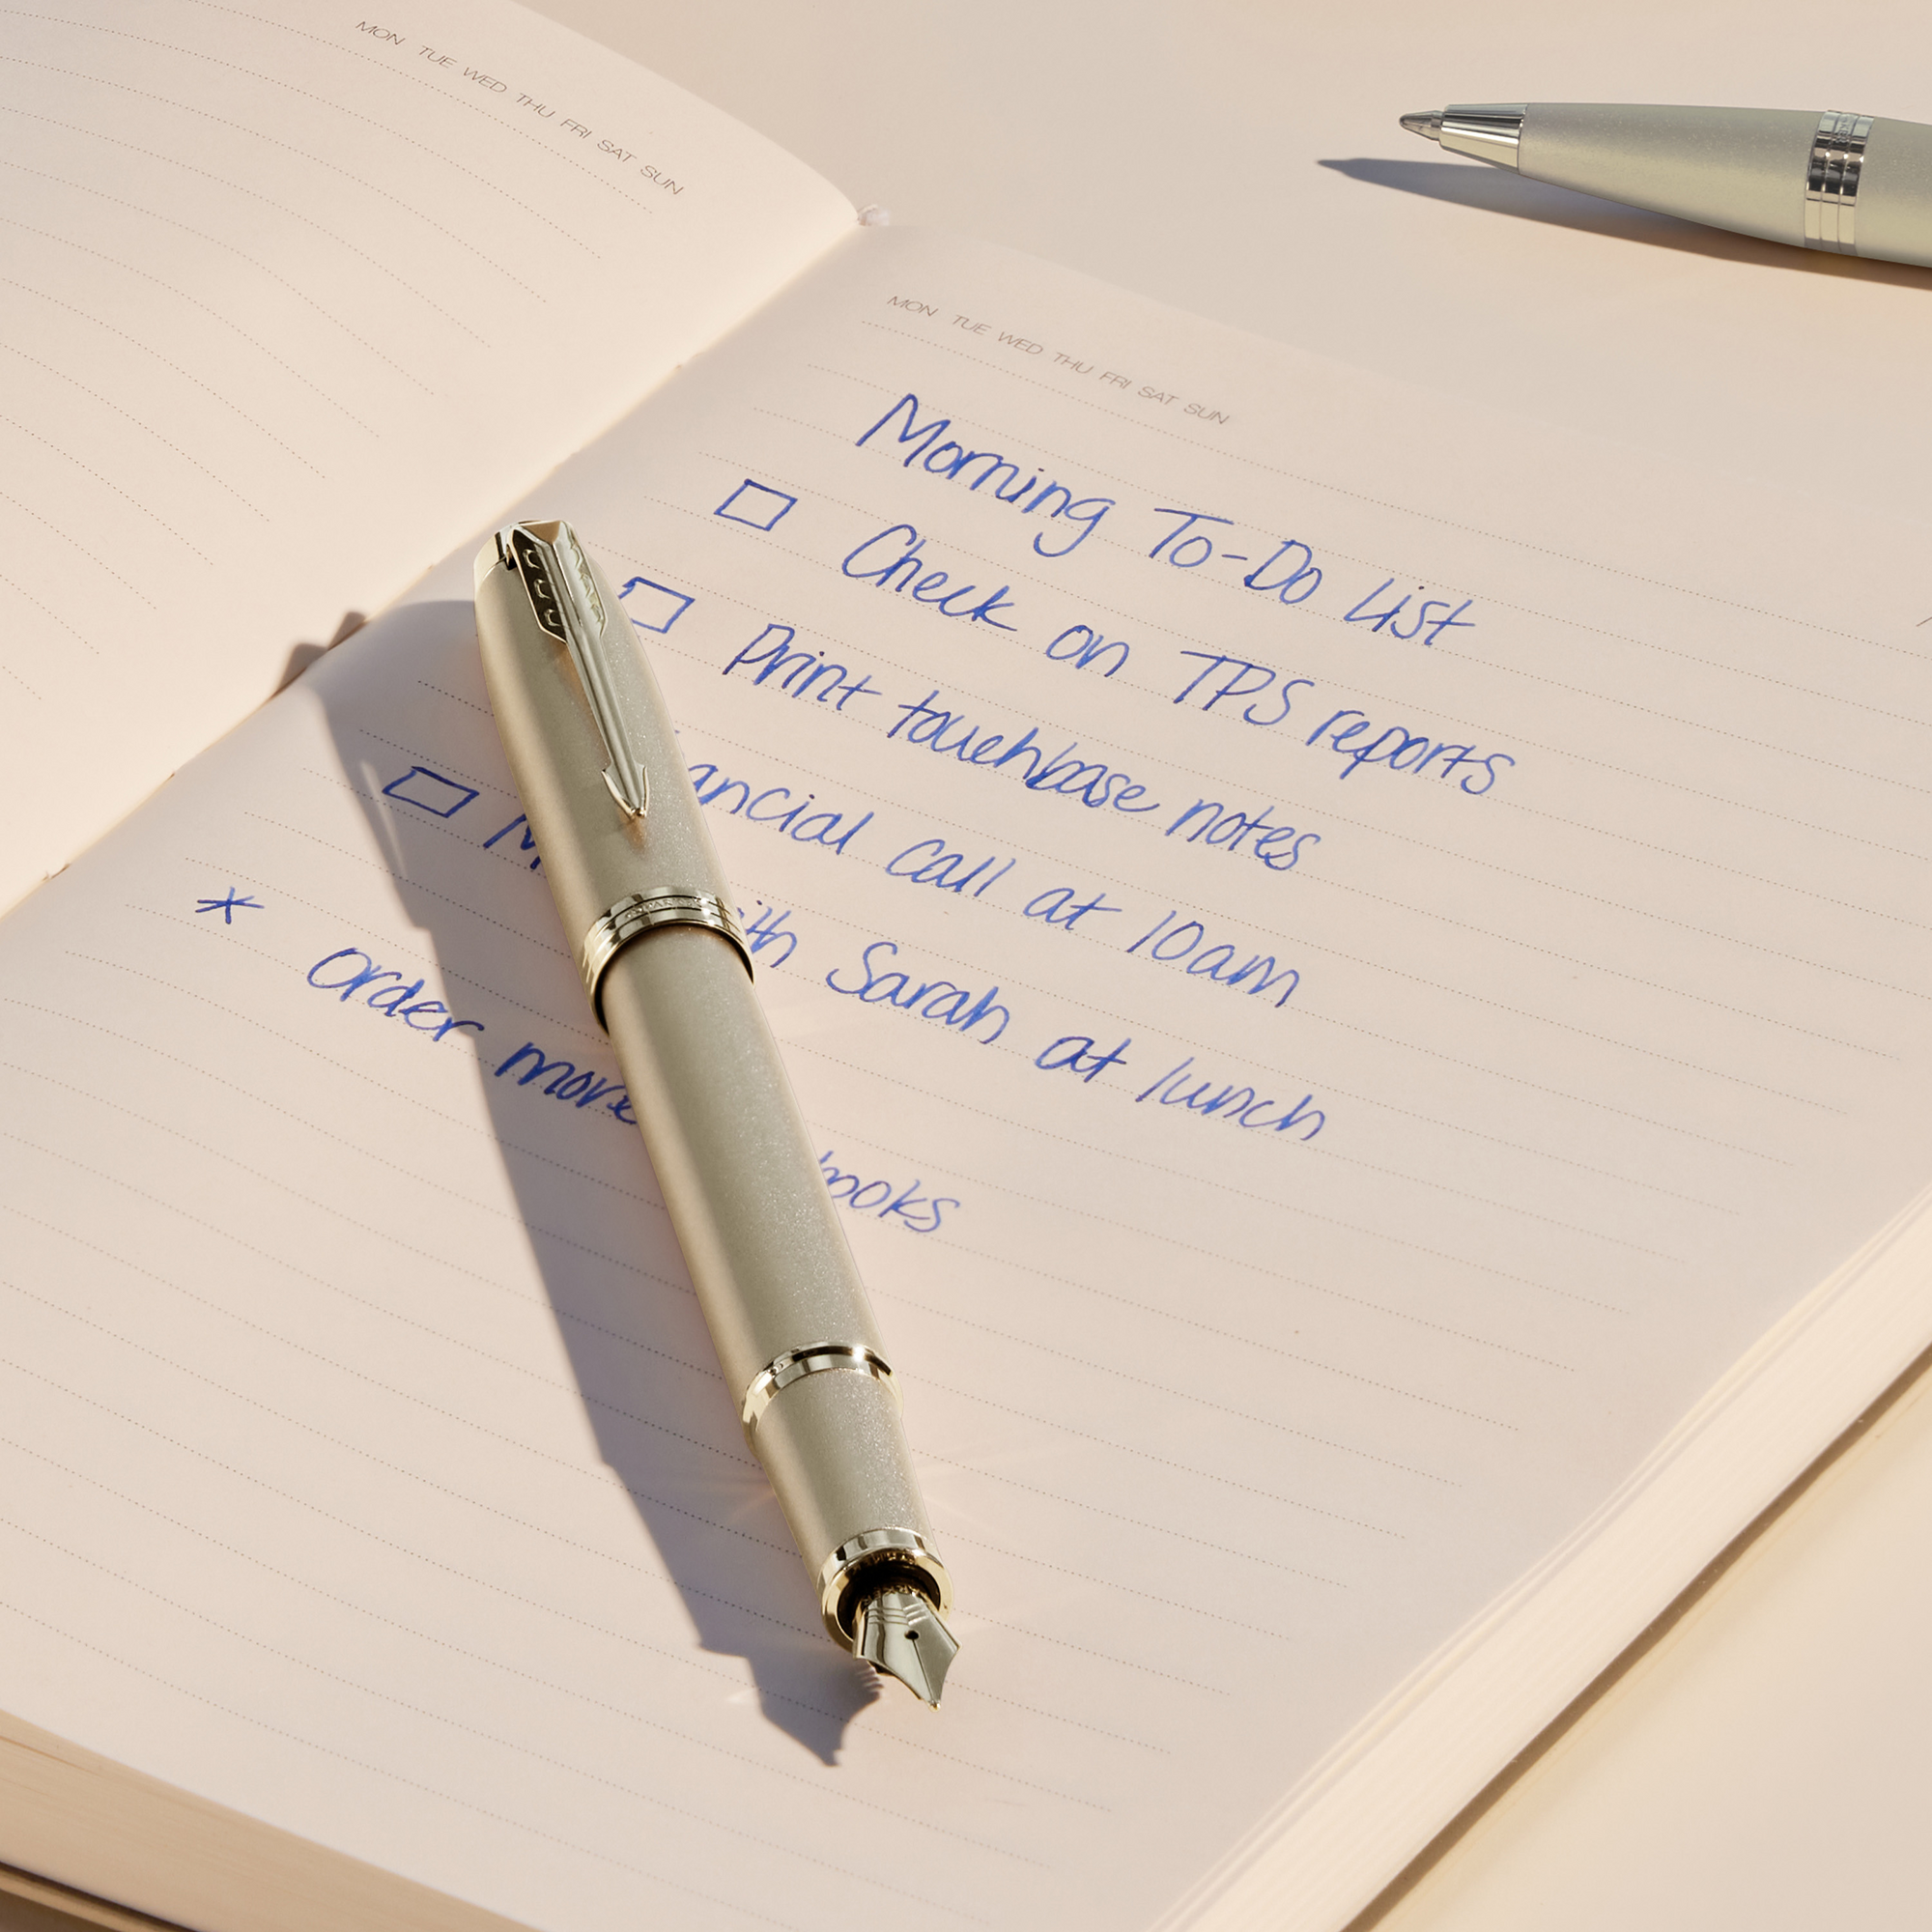 MON TUE WED THU FRI SAT SUN
MON TUE WED THU FRI SAT SUN
Morning To-Do List
Check on TPS reports
Print touchbase notes
call at 10am
Sarah at lunch
* Order more